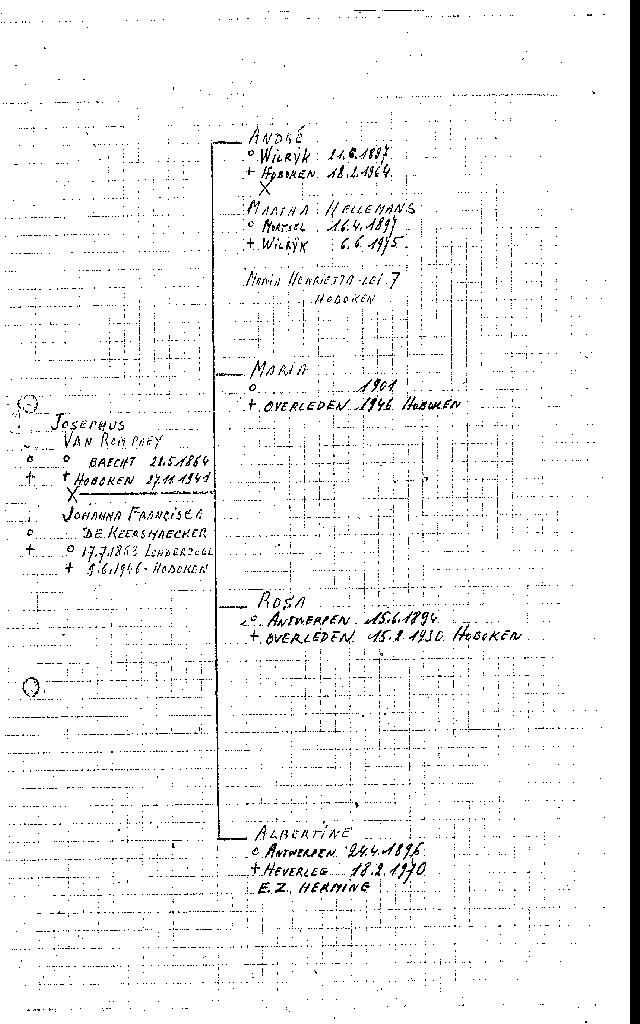 ANDRÉ
° WILRŸK 21.6.1897
+ HOBOKEN 18.2.1964
X
MARTHA HELLEMANS
° MORTSEL 16.4.1897
+ WILRŸK 6.6.1975
MARIA HENRIETTA-LEI 7
HOBOKEN
MARIA
° 1901
+ OVERLEDEN 1946 HOBOKEN
JOSEPHUS
VAN ROMPAEY
° BRECHT 28.5.1864
+ HOBOKEN 27.11.1941
X
JOHANNA FRANCISCA
DE KEERSMAECKER
° 17.7.1863 LONDERZEEL
+ 9.6.1946 - HOBOKEN
ROSA
° ANTWERPEN 15.6.1894
+ OVERLEDEN 15.2.1930 HOBOKEN
ALBERTINE
° ANTWERPEN 24.4.1896
+ HEVERLEE 18.2.1970
E.Z. HERMINE